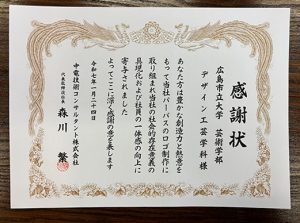 感謝状
広島市立大学 芸術学部
デザイン工芸学科様
あなた方は豊かな創造力と熱意を
もって当社パーパスのロゴ制作に
取り組まれ当社の社会的存在意義の
具現化および社員の一体感の向上に
寄与されました
よってここに深く感謝の意を表します
令和七年一月二十四日
中電技術コンサルタント株式会社
代表取締役社長
森川 繁